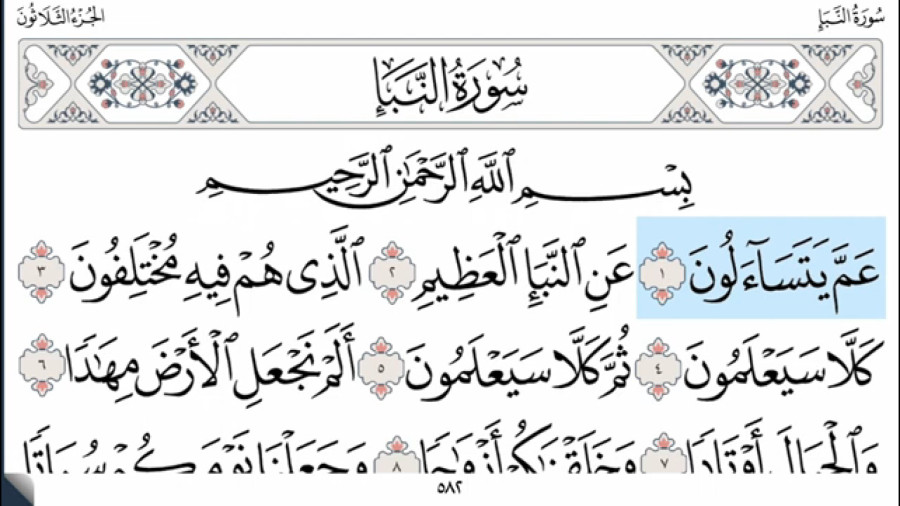 سُورَةُ النَّبَإِ
الجُزْءُ الثَّلَاثُونَ
سُورَةُ النَّبَإِ
بِسْمِ ٱللَّهِ ٱلرَّحْمَٰنِ ٱلرَّحِيمِ
عَمَّ يَتَسَآءَلُونَ ١ عَنِ ٱلنَّبَإِ ٱلْعَظِيمِ ٢ ٱلَّذِى هُمْ فِيهِ مُخْتَلِفُونَ ٣
كَلَّا سَيَعْلَمُونَ ٤ ثُمَّ كَلَّا سَيَعْلَمُونَ ٥ أَلَمْ نَجْعَلِ ٱلْأَرْضَ مِهَٰدًا ٦
وَٱلْجِبَالَ أَوْتَادًا ٧ وَخَلَقْنَٰكُمْ أَزْوَٰجًا ٨ وَجَعَلْنَا نَوْمَكُمْ سُبَاتًا
٥٨٢